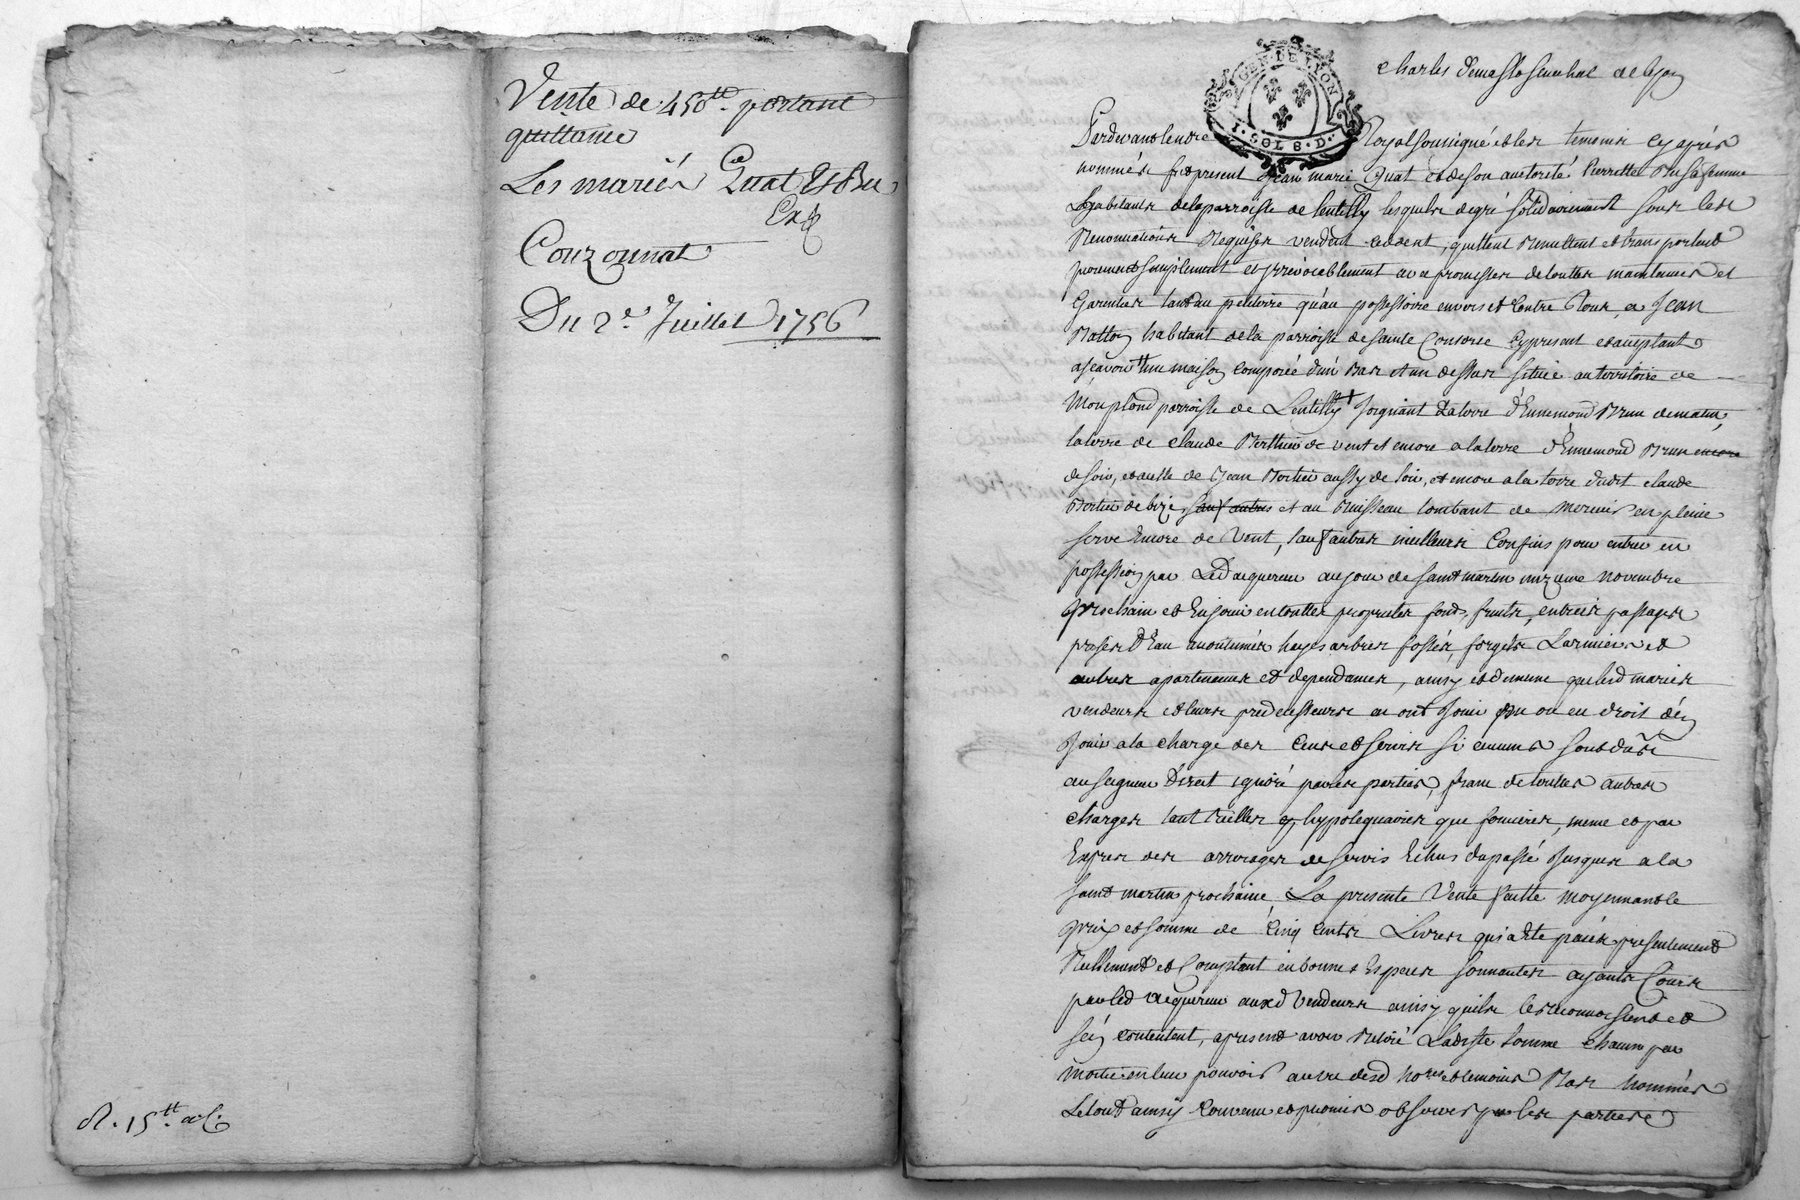 Vente de 450tt portant
quittance
Les mariés Quat et Bru
Couzonnat
Du 2e Juillet 1756
R. 15tt
GEN. DE LYON
1. SOL 8. D.
Charles senechal de Lyon
Pardevant le notre Royal soussigné et les temoins cy aprés
nommés fut present Jean marie Quat et de son authorité Pierrette Bru sa femme
habitants de la parroisse de Lentilly lesquels de gré solidairement sous les
Renonciations Requises vendent cedent, quittent Remettent et transportent
purement simplement et irrevocablement avec promesses de toutes maintenues et
Garenties tant au petitoire qu'au possessoire envers et Contre Tous, a Jean
habitant de la parroisse de Sainte Consorce Cy present et acceptant
asçavoir une maison Composée d'un bas et un dessus située au territoire de
parroisse de Lentilly Joignant la terre d'Ennemond Brun de matin,
la terre de Claude de vent et encore a la terre d'Ennemond Brun encore
de soir, et celle de Jean aussy de soir, et encore a la terre dudit Claude
de bize, sauf autres et au Ruisseau tombant de en pleine
serve Encore de Vent, sauf autres meilleurs Confins pour entrer en
possession par Led acquereur au jour de saint martin onzieme novembre
prochain et En jouir en touttes proprietés fonds, fruits, entrées passages
prises d'Eau accoutumées hayes arbres fossés, forgets Larmiers et
autres apartenances et dependances, ainsy et de meme que lesd mariés
vendeurs et leurs predecesseurs en ont Joui ou eu droit d'en
Jouir a la charge des Cens et servis si aucuns sont dus
au seigneur Direct ignoré par les parties, franc de touttes autres
charges tant Reelles hypotequaires que foncieres, meme et par
Exprés des arrerages de servis Echus du passé Jusques a la
saint martin prochaine, La presente Vente faitte moyennant le
prix et somme de Cinq Cents Livres qui a Eté paiée presentement
Reellement et Comptant en bonnes Especes sonnantes ayants Cours
par led acquereur auxd Vendeurs ainsy qu'ils le reconnoissent et
s'en contentent, apres avoir Retiré Laditte somme chacun par
moitié en leur pouvoir au vu desd nores et temoins Bas Nommés
Le tout ainsy Convenu et promis observer par les parties